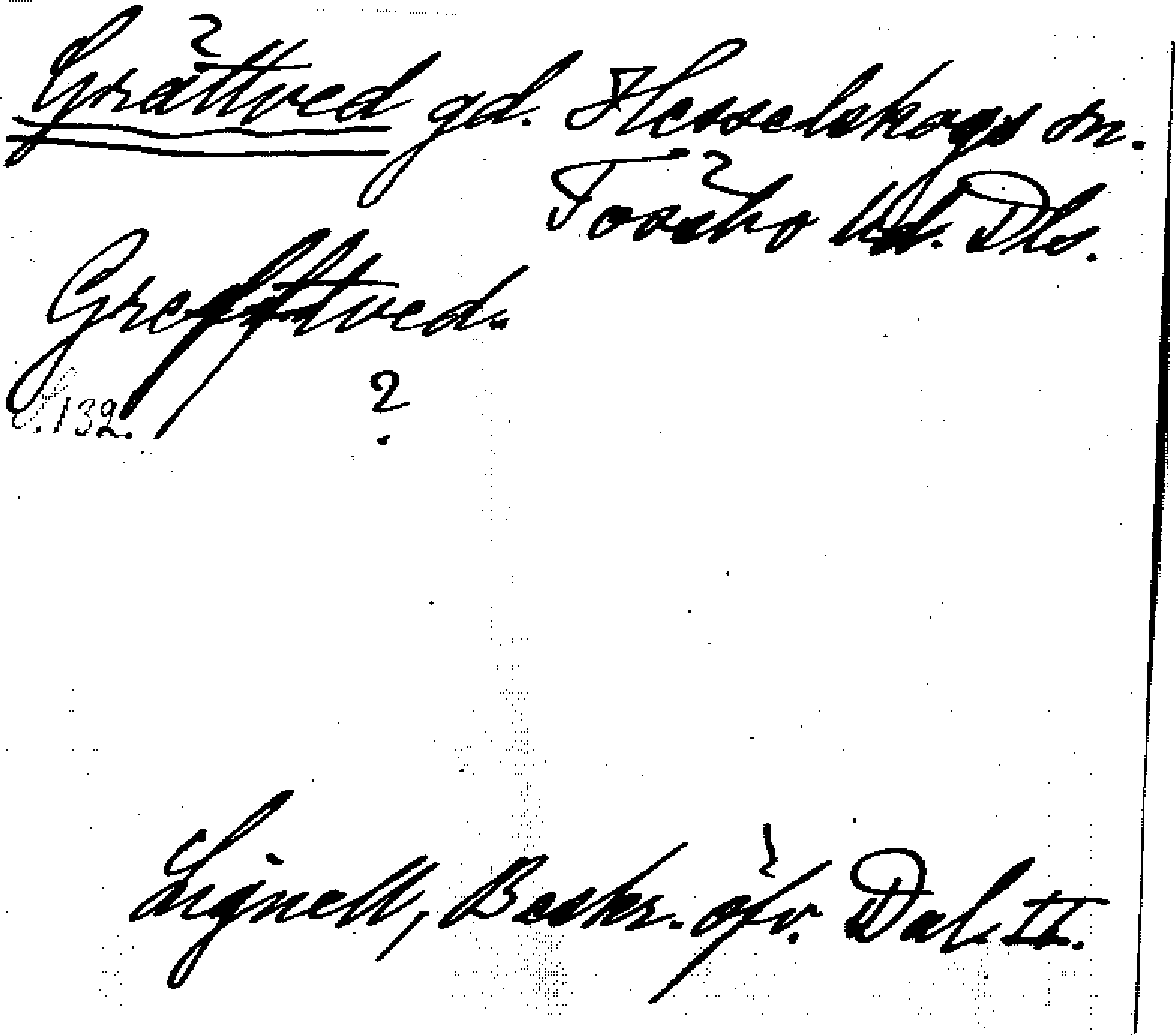 Grättved gd. Hesselskogs sn.
Tössbo hd. Dls.
Grefftved.
S. 132.
?
Lignell, Beskr. öfv. Dal. II.